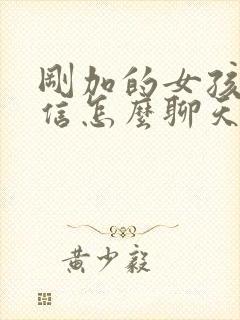 剛加的女孩
信怎麼聊天
黃少毅